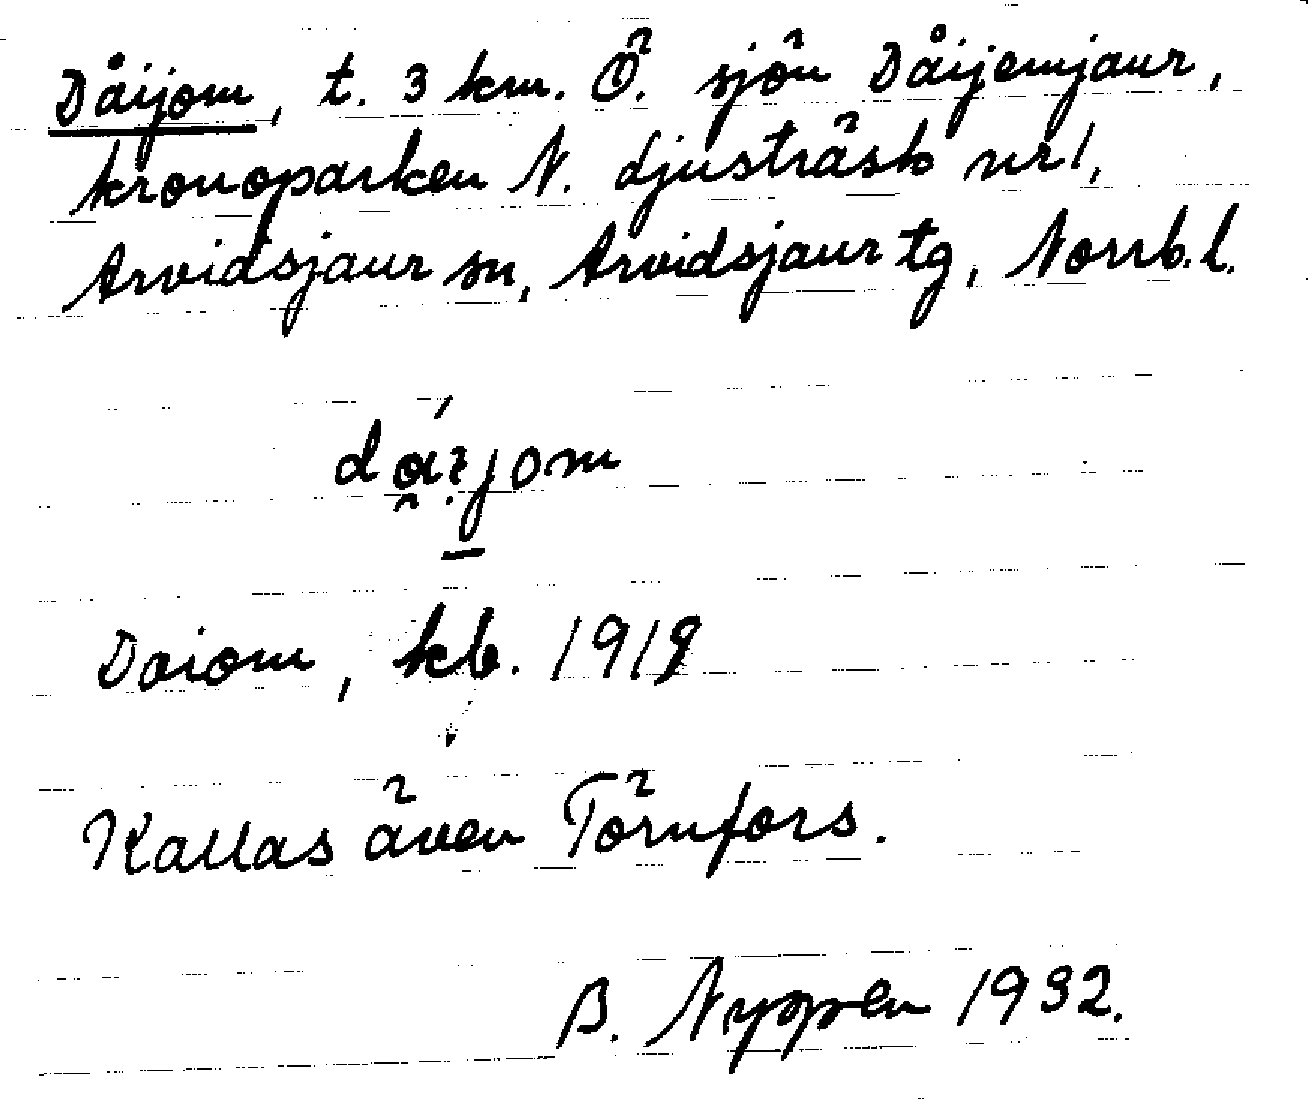 Dåijom, t. 3 km. Ö. sjön Dåijemjaur,
kronoparken N. djusträsk nr 1,
Arvidsjaur sn, Arvidsjaur tg, Norrb. l.
Daiom, kb. 1919
Kallas även Törnfors.
B. Nyppen 1932.